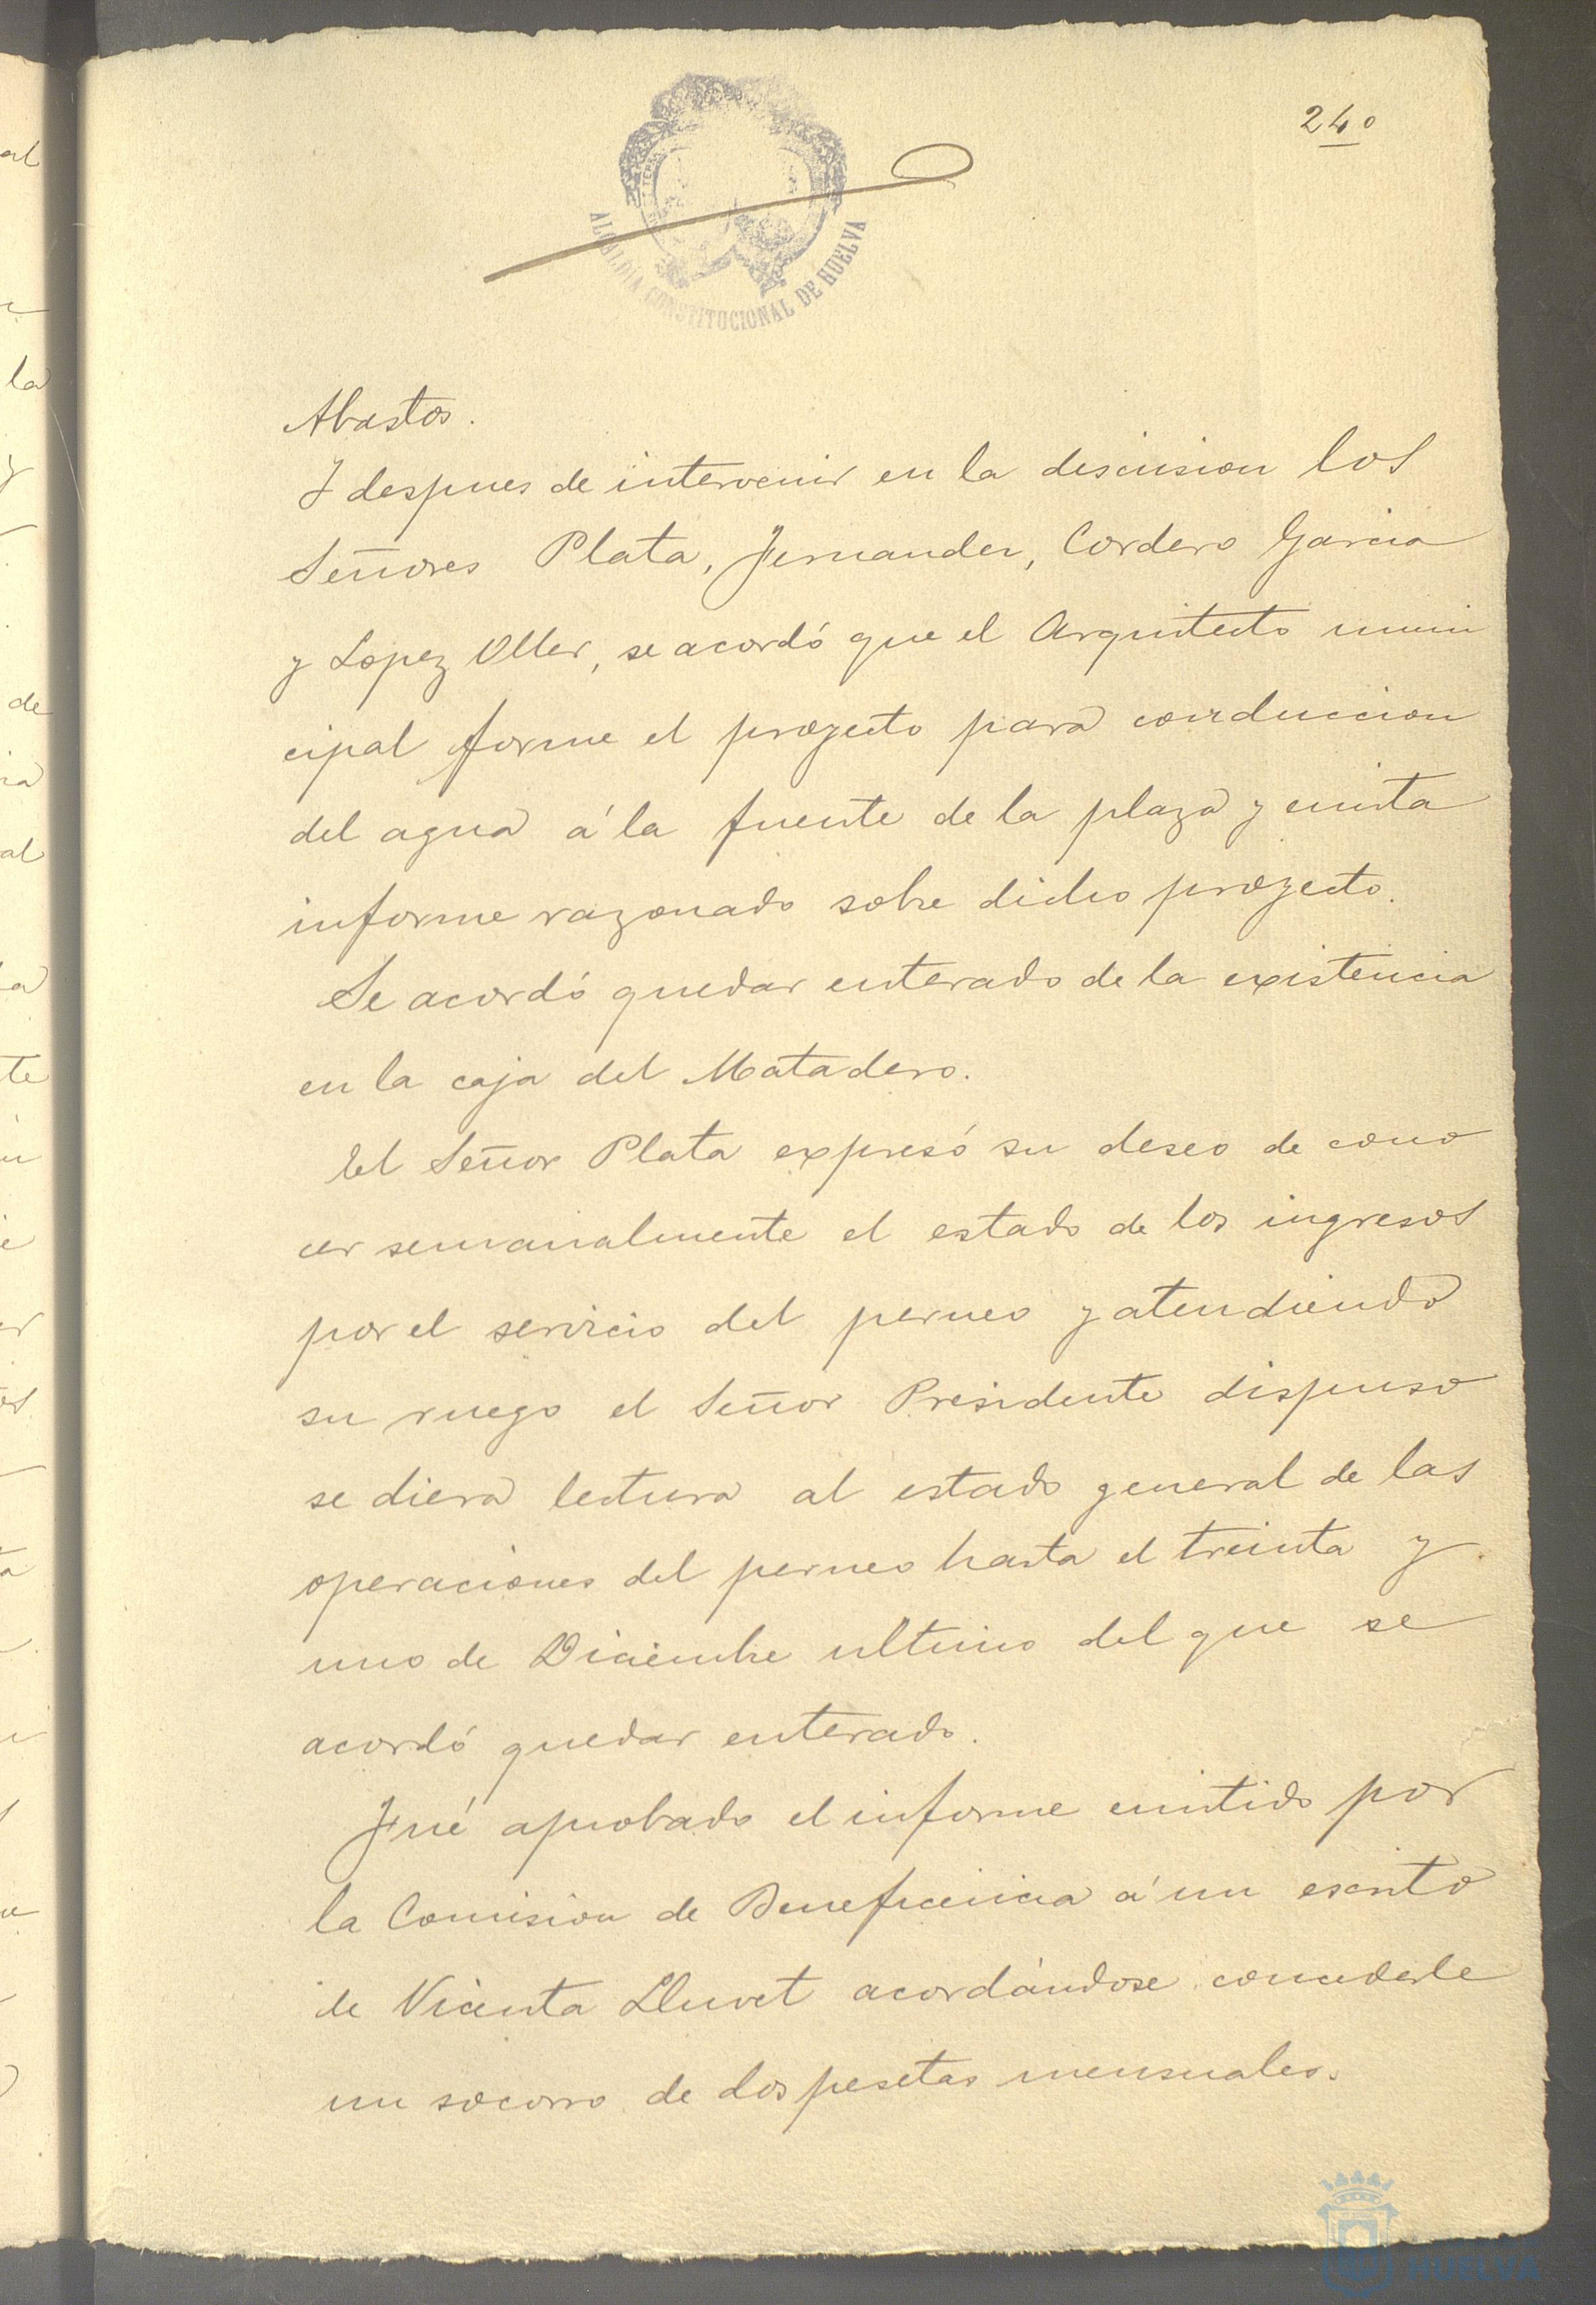 240
ALCALDIA CONSTITUCIONAL DE HUELVA
Abastos.
Y despues de intervenir en la discusion los
Señores Plata, Fernandez, Cordero Garcia
y Lopez Oller, se acordó que el Arquitecto muni
cipal forme el proyecto para conduccion
del agua á la fuente de la plaza y emita
informe razonado sobre dicho proyecto.
Se acordó quedar enterado de la existencia
en la caja del Matadero.
El Señor Plata expresó su deseo de cono
cer semanalmente el estado de los ingresos
por el servicio del perneo y atendiendo
su ruego el Señor Presidente dispuso
se diera lectura al estado general de las
operaciones del perneo hasta el treinta y
uno de Diciembre ultimo del que se
acordó quedar enterado.
Fué aprobado el informe emitido por
la Comision de Beneficencia á un escrito
de Vicenta Lluvet acordándose concederle
un socorro de dos pesetas mensuales.
HUELVA